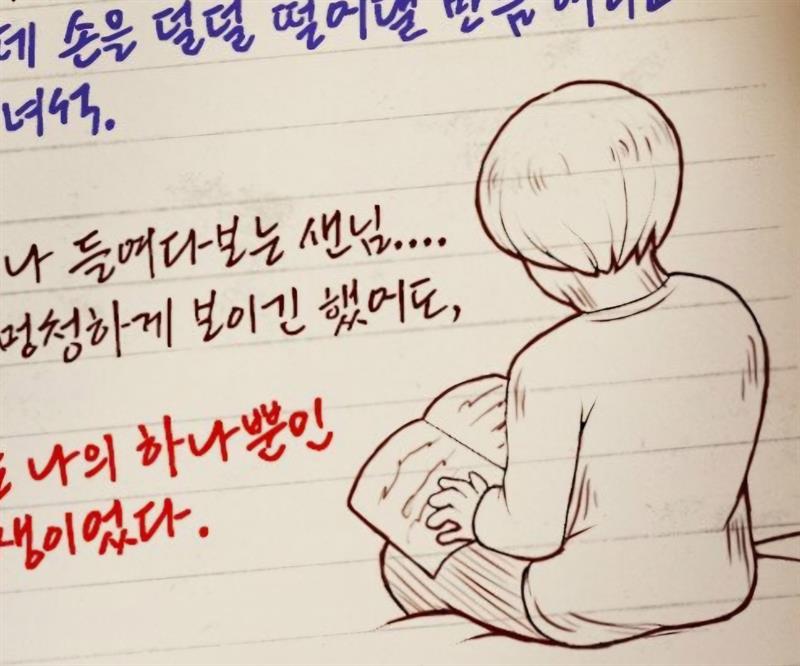 데 손은 덜덜 떨어댈 만큼
녀석.
나 들여다보는 샌님....
멍청하게 보이긴 했어도,
나의 하나뿐인
생이었다.